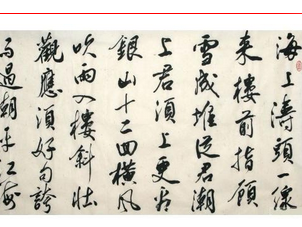 海上濤頭一線
来樓前指顧
雪成堆從君潮
上君須上更看
銀山十二回横風
吹雨入樓斜壮
觀應須好句誇
雨過潮平江海